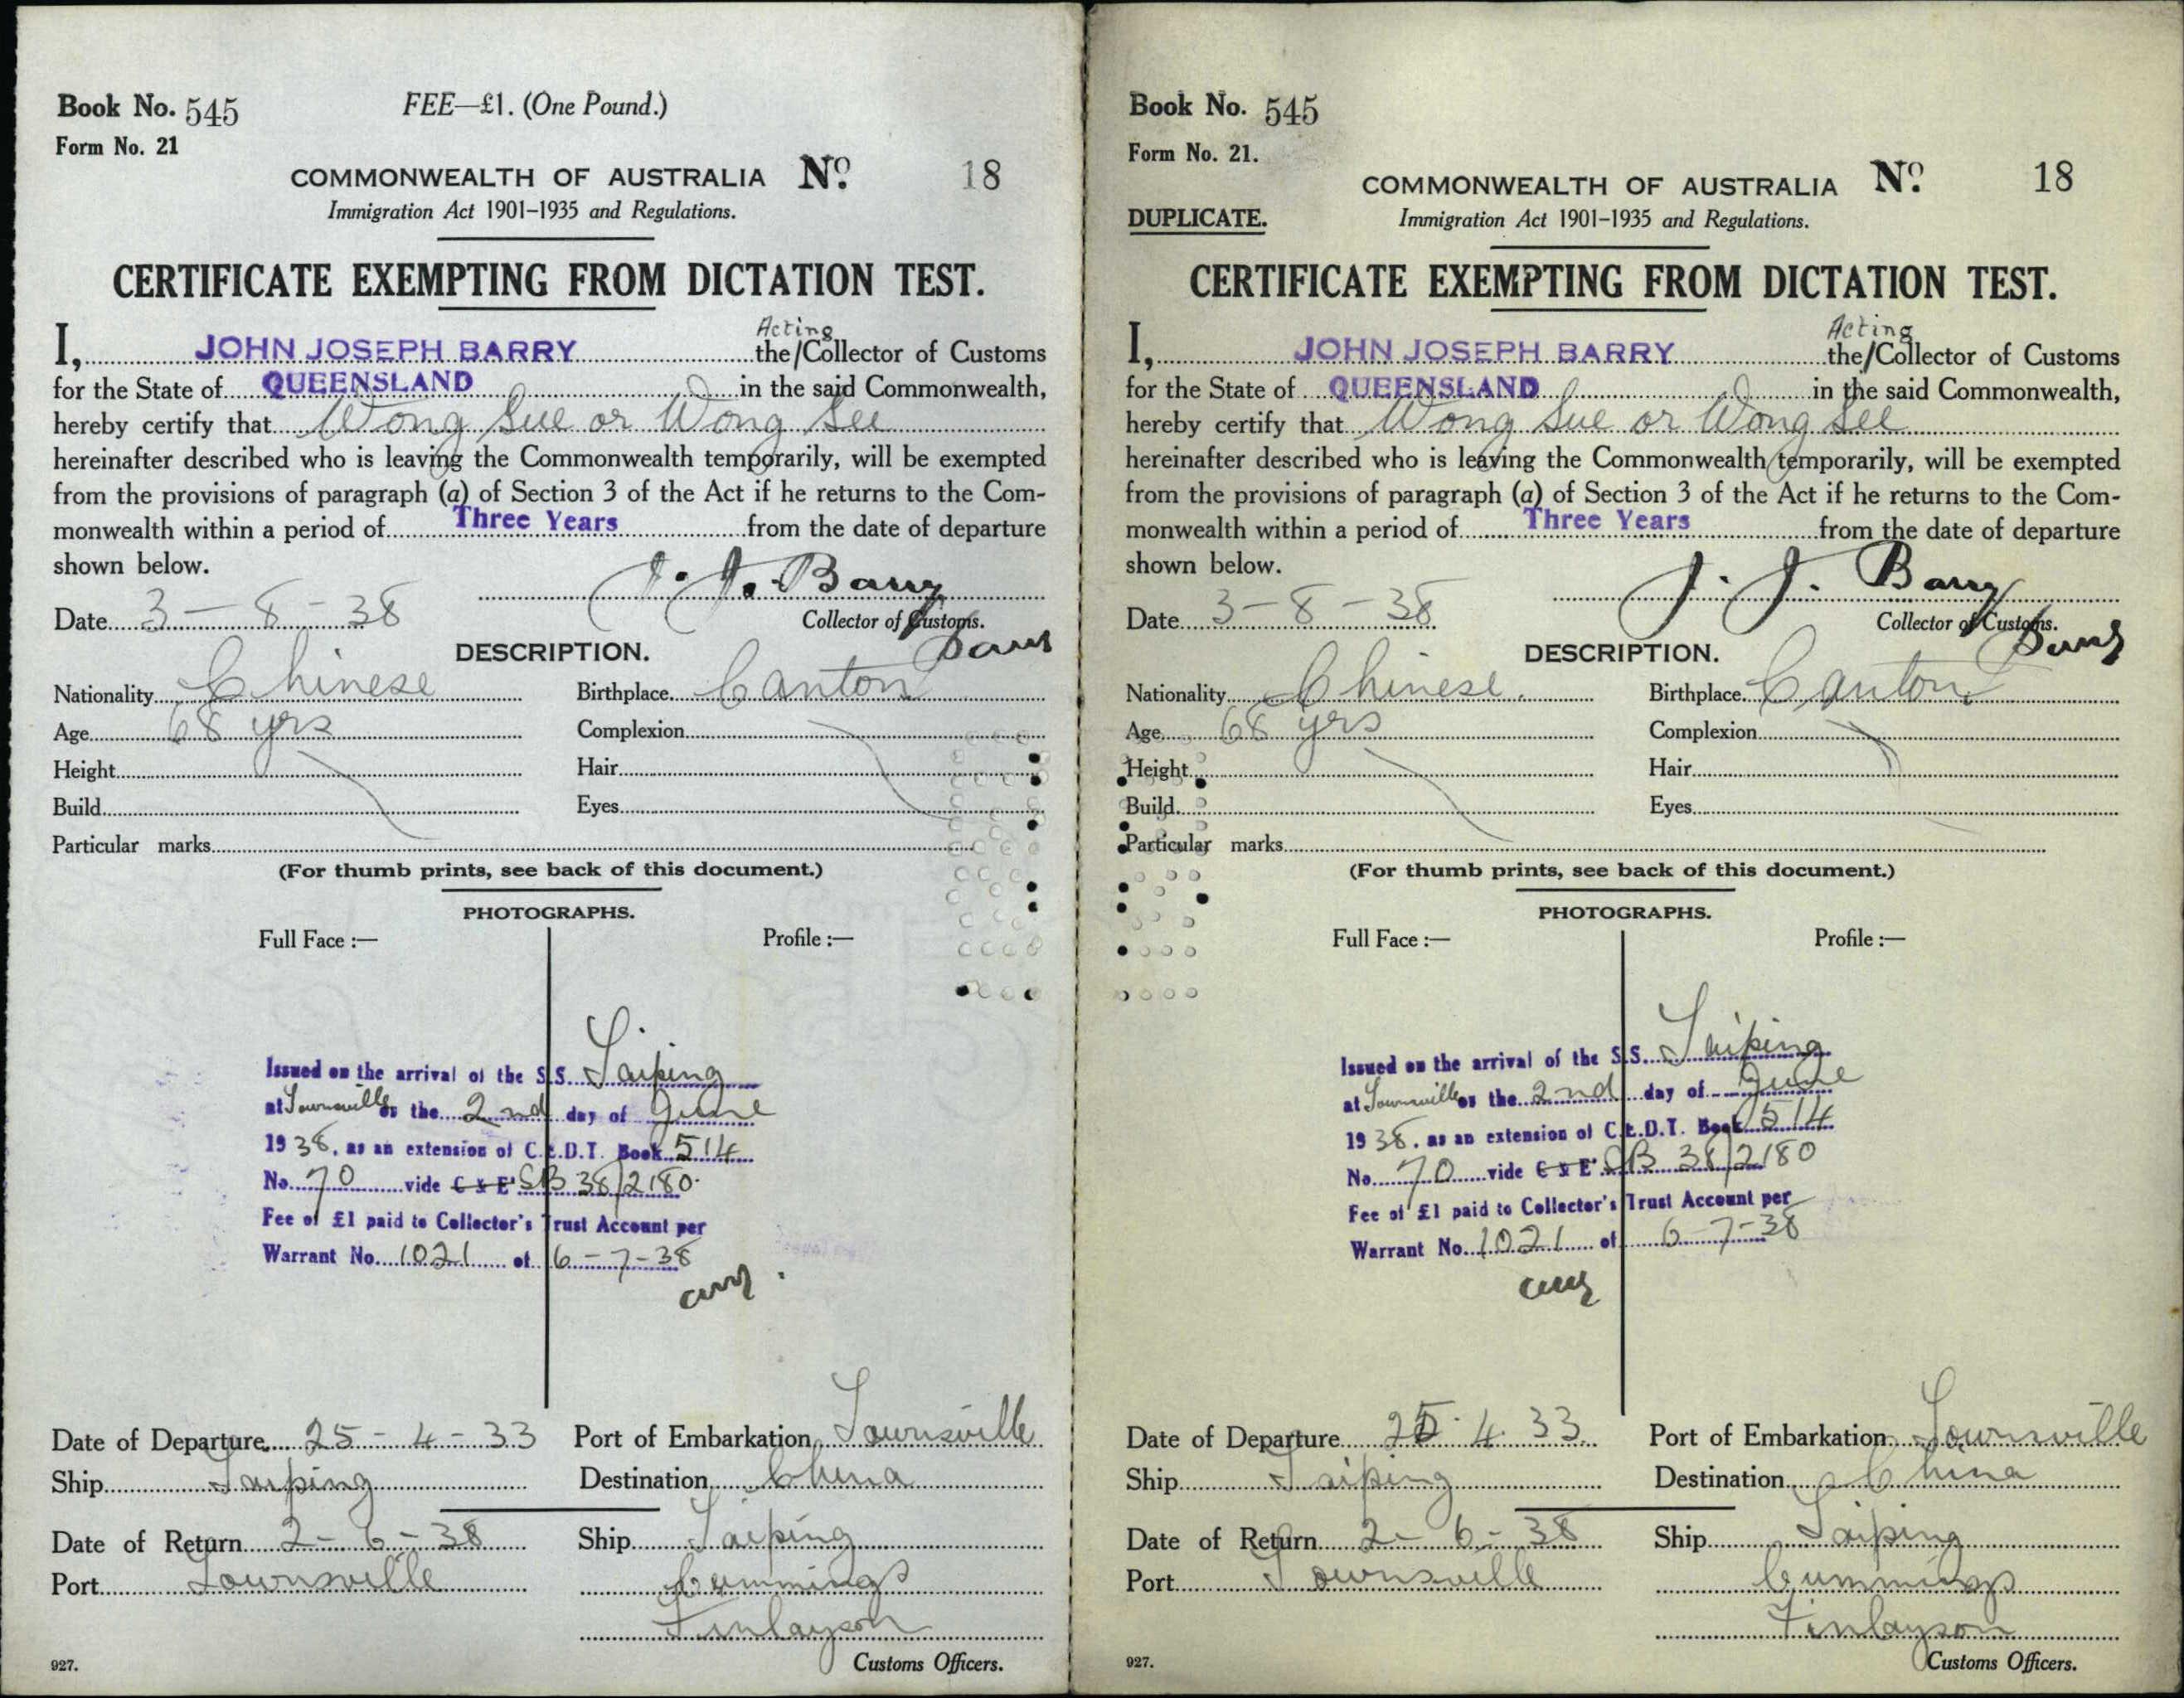 Book No. 545
FEE—£1. (One Pound.)
Form No. 21
COMMONWEALTH OF AUSTRALIA No. 18
Immigration Act 1901–1935 and Regulations.
CERTIFICATE EXEMPTING FROM DICTATION TEST.
Acting
I, JOHN JOSEPH BARRY the/Collector of Customs
for the State of QUEENSLAND in the said Commonwealth,
hereby certify that Wong Sue or Wong See
hereinafter described who is leaving the Commonwealth temporarily, will be exempted
from the provisions of paragraph (a) of Section 3 of the Act if he returns to the Com-
monwealth within a period of Three Years from the date of departure
shown below.
J. J. Barry
Date 3-8-38 Collector of Customs.
DESCRIPTION.
Nationality Chinese Birthplace Canton
Age 68 yrs Complexion
Height Hair
Build Eyes
Particular marks
(For thumb prints, see back of this document.)
PHOTOGRAPHS.
Full Face :— Profile :—
Issued on the arrival of the S.S. Taiping
at Townsville on the 2nd day of June
1938, as an extension of C.E.D.T. Book 514
No. 70 vide C & E SB 38/2180
Fee of £1 paid to Collector's Trust Account per
Warrant No. 1021 of 6-7-38
Date of Departure 25-4-33 Port of Embarkation Townsville
Ship Taiping Destination China
Date of Return 2-6-38 Ship Taiping
Port Townsville Cummings
Finlayson
927. Customs Officers.
Book No. 545
Form No. 21.
COMMONWEALTH OF AUSTRALIA No. 18
DUPLICATE. Immigration Act 1901–1935 and Regulations.
CERTIFICATE EXEMPTING FROM DICTATION TEST.
Acting
I, JOHN JOSEPH BARRY the/Collector of Customs
for the State of QUEENSLAND in the said Commonwealth,
hereby certify that Wong Sue or Wong See
hereinafter described who is leaving the Commonwealth temporarily, will be exempted
from the provisions of paragraph (a) of Section 3 of the Act if he returns to the Com-
monwealth within a period of Three Years from the date of departure
shown below.
J. J. Barry
Date 3-8-38 Collector of Customs.
DESCRIPTION.
Nationality Chinese. Birthplace Canton
Age 68 yrs Complexion
Height Hair
Build Eyes
Particular marks
(For thumb prints, see back of this document.)
PHOTOGRAPHS.
Full Face :— Profile :—
Issued on the arrival of the S.S. Taiping
at Townsville on the 2nd day of June
1938, as an extension of C.E.D.T. Book 514
No. 70 vide C & E SB 38/2180
Fee of £1 paid to Collector's Trust Account per
Warrant No. 1021 of 6-7-38
Date of Departure 25.4.33 Port of Embarkation Townsville
Ship Taiping Destination China
Date of Return 2-6-38 Ship Taiping
Port Townsville Cummings
Finlayson
927. Customs Officers.